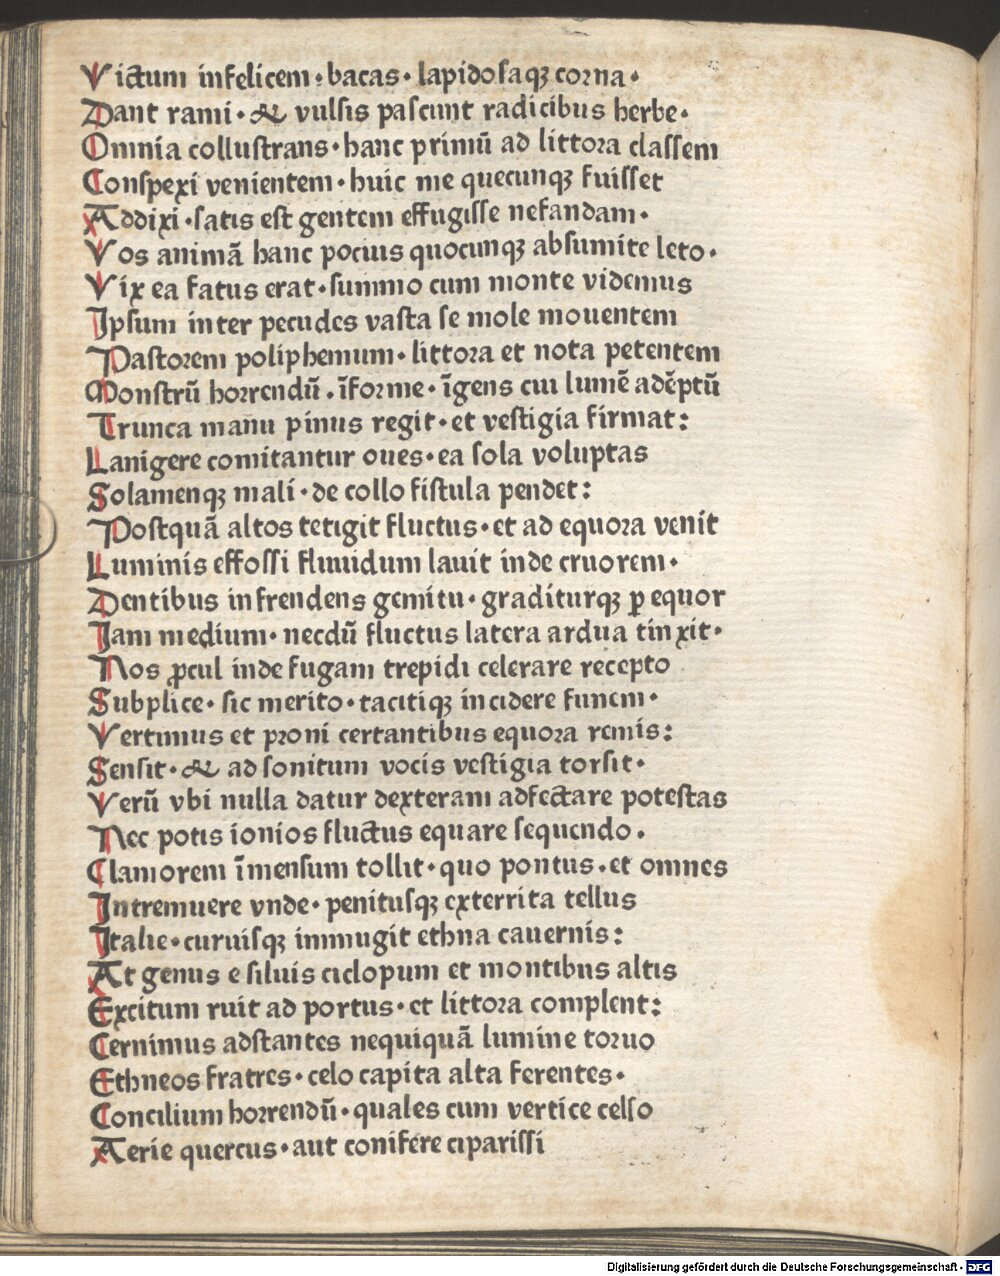 Victum infelicem · bacas · lapidosaqꝫ corna ·
Dant rami · & vulsis pascunt radicibus herbe ·
Omnia collustrans · hanc primū ad littora classem
Conspexi venientem · huic me quecunqꝫ fuisset
Addixi · satis est gentem effugisse nefandam ·
Vos animā hanc pocius quocunqꝫ absumite leto ·
Vix ea fatus erat · summo cum monte videmus
Ipsum inter pecudes vasta se mole mouentem
Pastorem poliphemum · littora et nota petentem
Monstrū horrendū · īforme · īgens cui lumē adēptū
Trunca manu pinus regit · et vestigia firmat :
Lanigere comitantur oues · ea sola voluptas
Solamenqꝫ mali · de collo fistula pendet :
Postquā altos tetigit fluctus · et ad equora venit
Luminis effossi fluuidum lauit inde cruorem ·
Dentibus infrendens gemitu · graditurqꝫ ꝑ equor
Iam medium · necdū fluctus latera ardua tinxit ·
Nos ꝓcul inde fugam trepidi celerare recepto
Subplice · sic merito · tacitiqꝫ incidere funem ·
Vertimus et proni certantibus equora remis :
Sensit · & ad sonitum vocis vestigia torsit ·
Verū vbi nulla datur dexteram adfectare potestas
Nec potis ionios fluctus equare sequendo .
Clamorem īmensum tollit · quo pontus · et omnes
Intremuere vnde · penitusqꝫ exterrita tellus
Italie · curuisqꝫ inmugit ethna cauernis :
At genus e siluis ciclopum et montibus altis
Excitum ruit ad portus · et littora complent :
Cernimus adstantes nequiquā lumine toruo
Ethneos fratres · celo capita alta ferentes ·
Concilium horrendū · quales cum vertice celso
Aerie quercus · aut conifere ciparissi
Digitalisierung gefördert durch die Deutsche Forschungsgemeinschaft - DFG